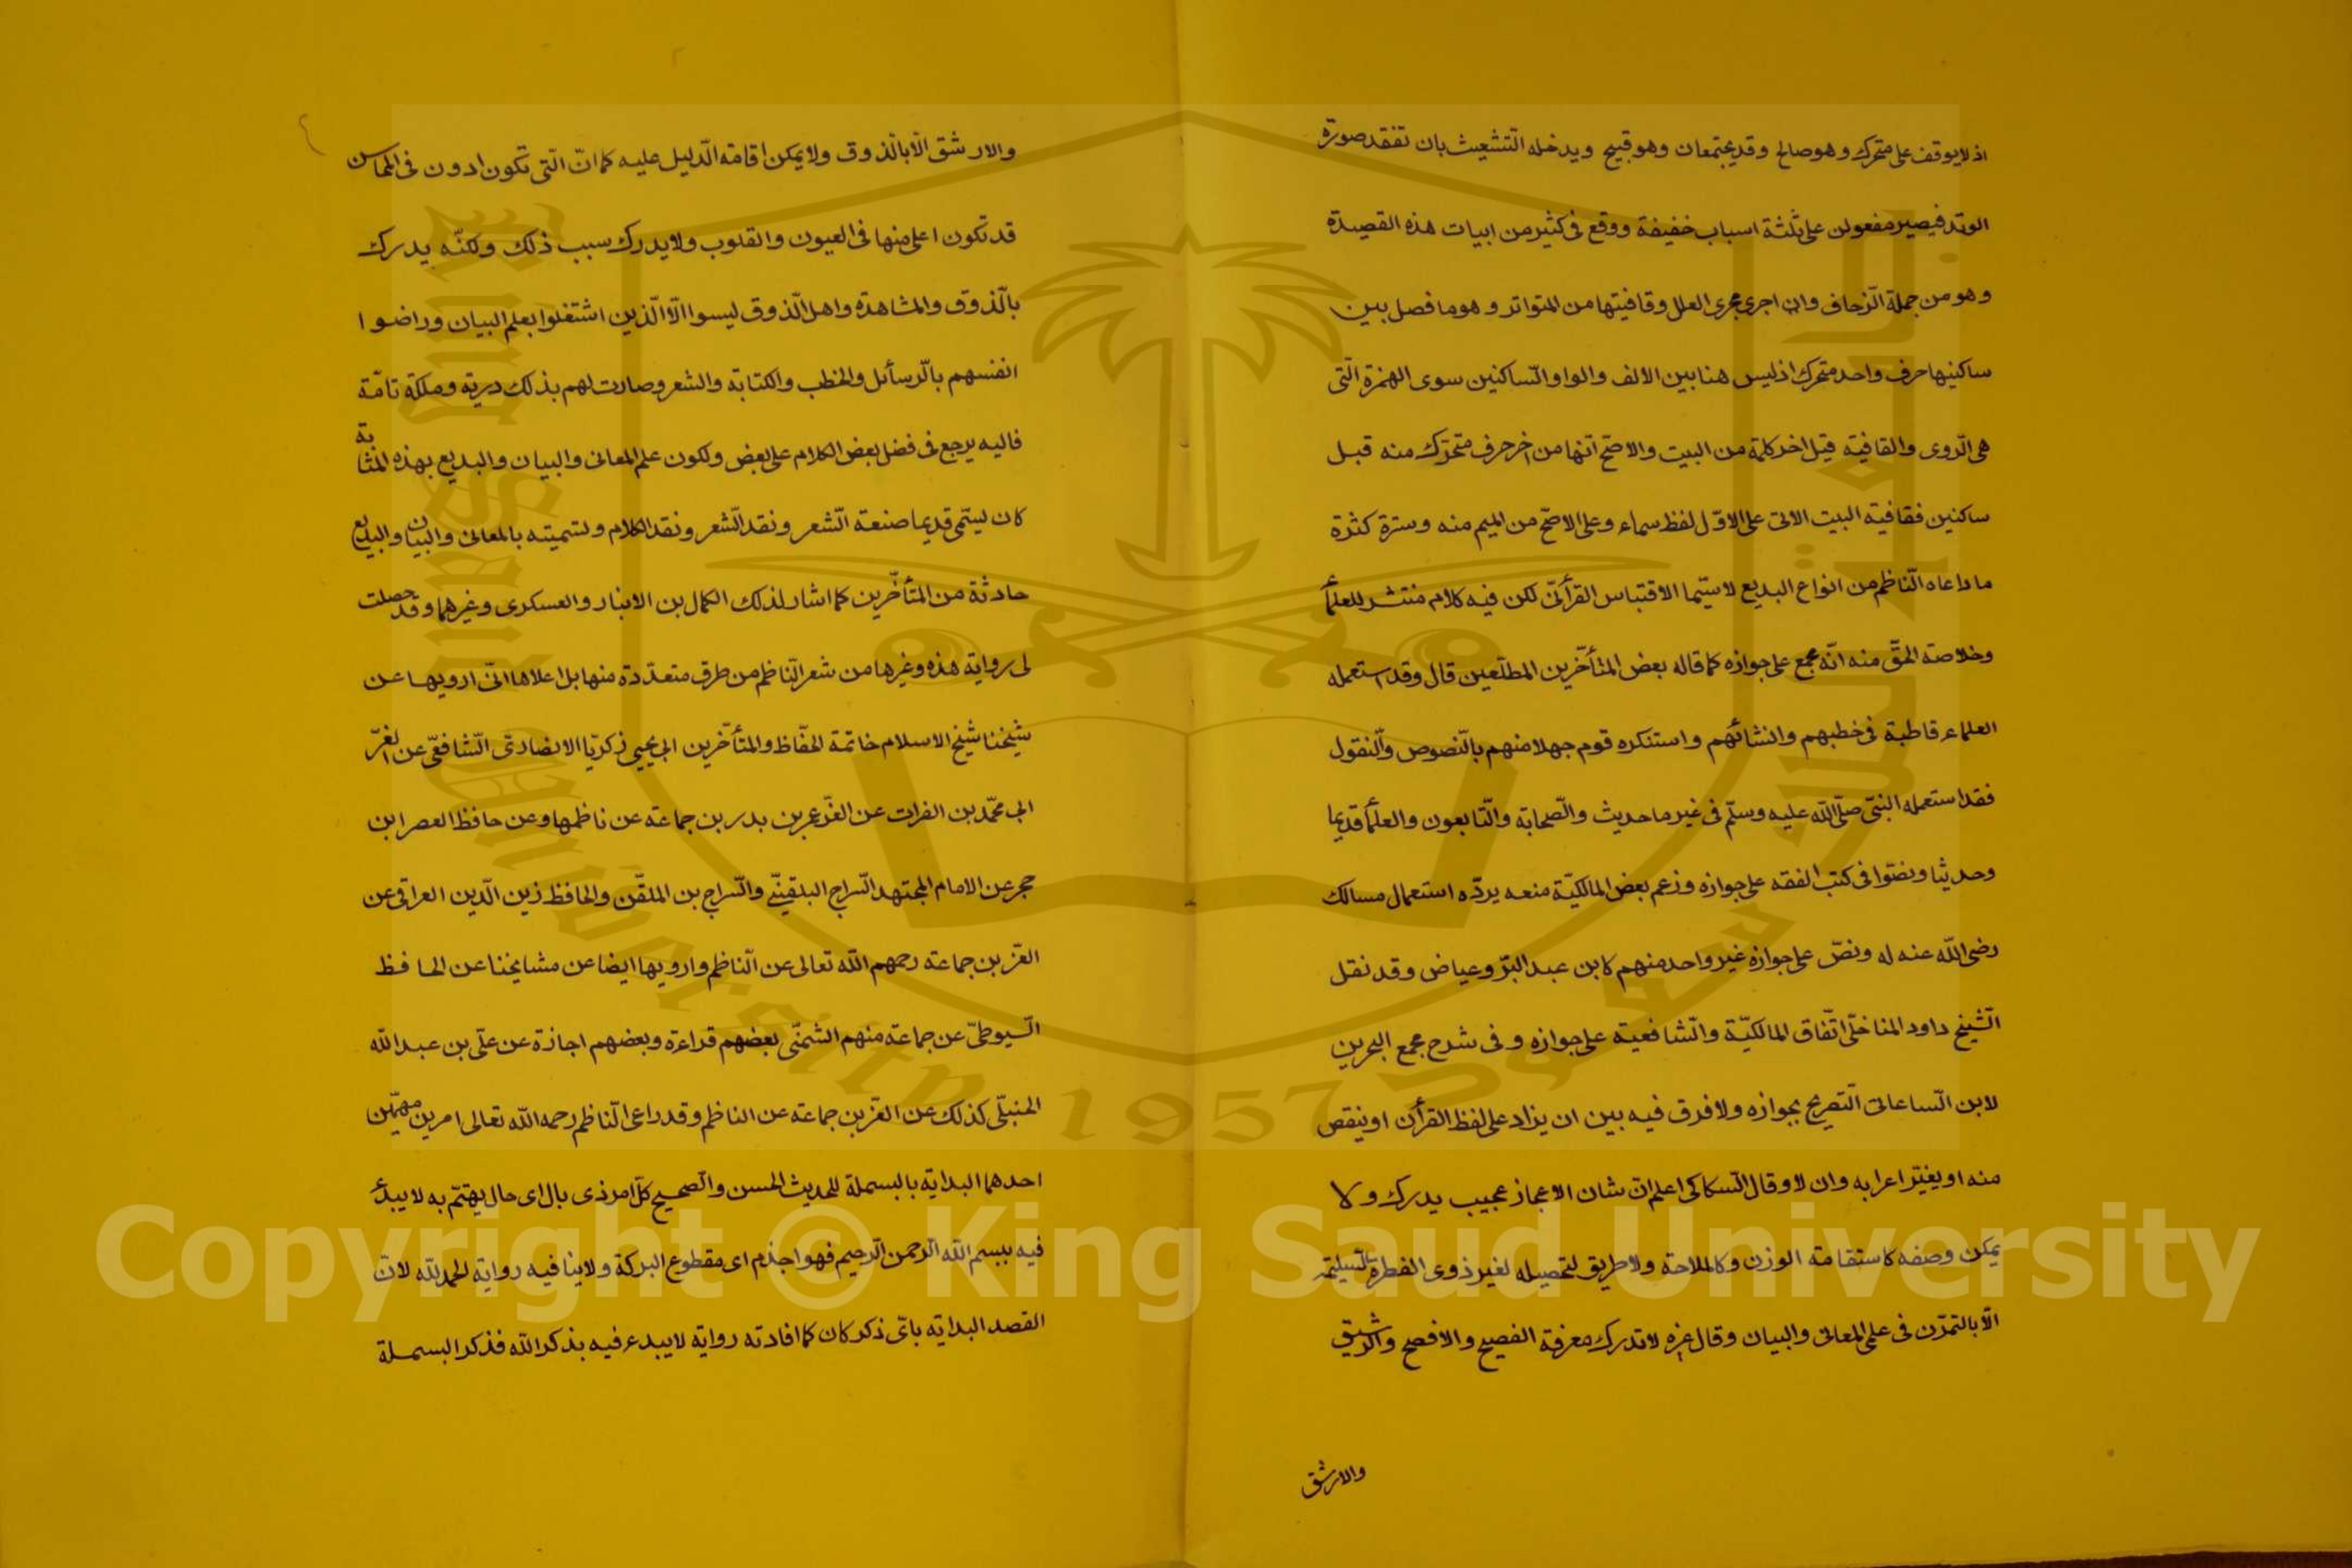 اذ لا يوقف على متحرك وهو صالح وقد يجتمعان وهو قبيح ويدخله التّشعيث بان تفقد صورة
الوتد فيصير مفعولن على ثلثة اسباب خفيفة ووقع فى كثير من ابيات هذه القصيدة
وهو من جملة الزّحاف وان اجرى مجرى العلل وقافيتها من المتواتر وهو ما فصل بين
ساكنيها حرف واحد متحرك اذ ليس هنا بين الالف والواو السّاكنين سوى الهمزة الّتى
هى الرّوى والقافية قيل اخر كلمة من البيت والاصحّ انّها من اخر حرف متحرّك منه قبل
ساكنين فقافية البيت الاتى على الاوّل لفظ سماء وعلى الاصحّ من الميم منه وسترة كثرة
ما داعاه النّاظم من انواع البديع لاسيّما الاقتباس القرأنّى لكن فيه كلام منتشر للعلمأ
وخلاصة الحقّ منه انّه مجمع على جوازه كما قاله بعض المتأخّرين المطلّعين قال وقد استعمله
العلماء قاطبة فى خطبهم وانشائهم واستنكره قوم جهلا منهم بالنّصوص والنّقول
فقد استعمله النبىّ صلّى اللّه عليه وسلّم فى غير ما حديث والصّحابة والتّابعون والعلمأ قديما
وحديثا ونصّوا فى كتب الفقه على جوازه وزعم بعض المالكيّة منعه يردّه استعمال مسالك
رضى اللّه عنه له ونصّ على جوازه غير واحد منهم كابن عبد البرّ وعياض وقد نقل
الشّيخ داود المناخلّى اتّفاق المالكيّة والشّافعية على جوازه وفى شرح مجمع البحرين
لابن السّاعاتى التّصريح بجوازه ولا فرق فيه بين ان يزاد على لفظ القرأن او ينقص
منه او يغيّر اعرابه وان لا وقال السّكاكى اعلم انّ شان الاعجاز عجيب يدرك ولا
يمكن وصفه كاستقامة الوزن وكالملاحة ولا طريق لتحصيله لغير ذوى الفطرة السّليمة
الّا بالتمرّن فى علمى المعانى والبيان وقال غيره لا تدرك معرفة الفصيح والافصح والرشيق
والارشق
والارشق الّا بالذوق ولا يمكن اقامة الدّليل عليه كما انّ الّتى تكون ادون فى المحاسن
قد تكون اعلى منها فى العيون والقلوب ولا يدرك سبب ذلك ولكنّه يدرك
بالّذوق والمشاهدة واهل الّذوق ليسوا الّا الّذين اشتغلوا بعلم البيان وراضوا
انفسهم بالرّسائل والخطب والكتابة والشعر وصارت لهم بذلك درية وملكة تامّة
فاليه يرجع فى فضل بعض الكلام على بعض ولكون علم المعانى والبيان والبديع بهذه المثابة
كان يسمّى قديما صنعة الشّعر ونقد الشّعر ونقد الكلام وتسميته بالمعانى والبيان والبديع
حادثة من المتأخّرين كما اشار لذلك الكمال بن الانبار والعسكرى وغيرهما وقد حصلت
لى رواية هذه وغيرها من شعر النّاظم من طرق متعدّدة منها بل اعلاها انّى ارويها عن
شيخنا شيخ الاسلام خاتمة الحفّاظ والمتأخّرين ابى يحيى زكريّا الانصارىّ الشّافعىّ عن العزّ
ابى محمّد بن الفرات عن العزّ عمر بن بدر بن جماعة عن ناظمها وعن حافظ العصر ابن
حجر عن الامام المجتهد السّراج البلقينّى والسّراج بن الملقّن والحافظ زين الدّين العراقى عن
العزّ بن جماعة رحمهم اللّه تعالى عن النّاظم وارويها ايضا عن مشايخنا عن الحافظ
السّيوطىّ عن جماعة منهم الشمنّى بعضهم قراءة وبعضهم اجازة عن علّى بن عبد اللّه
الحنبلّى كذلك عن العزّ بن جماعة عن الناظم وقد راعى النّاظم رحمه اللّه تعالى امرين مهمّين
احدهما البداية بالبسملة للحديث الحسن والصّحيح كلّ امر ذى بال اى حال يهتمّ به لا يبدء
فيه ببسم اللّه الرّحمن الرّحيم فهو اجذم اى مقطوع البركة ولا ينافيه رواية الحمد للّه لانّ
القصد البداية باىّ ذكر كان كما افادته رواية لا يبدء فيه بذكر اللّه فذكر البسملة
King Saud University
1957
Copyright © King Saud University